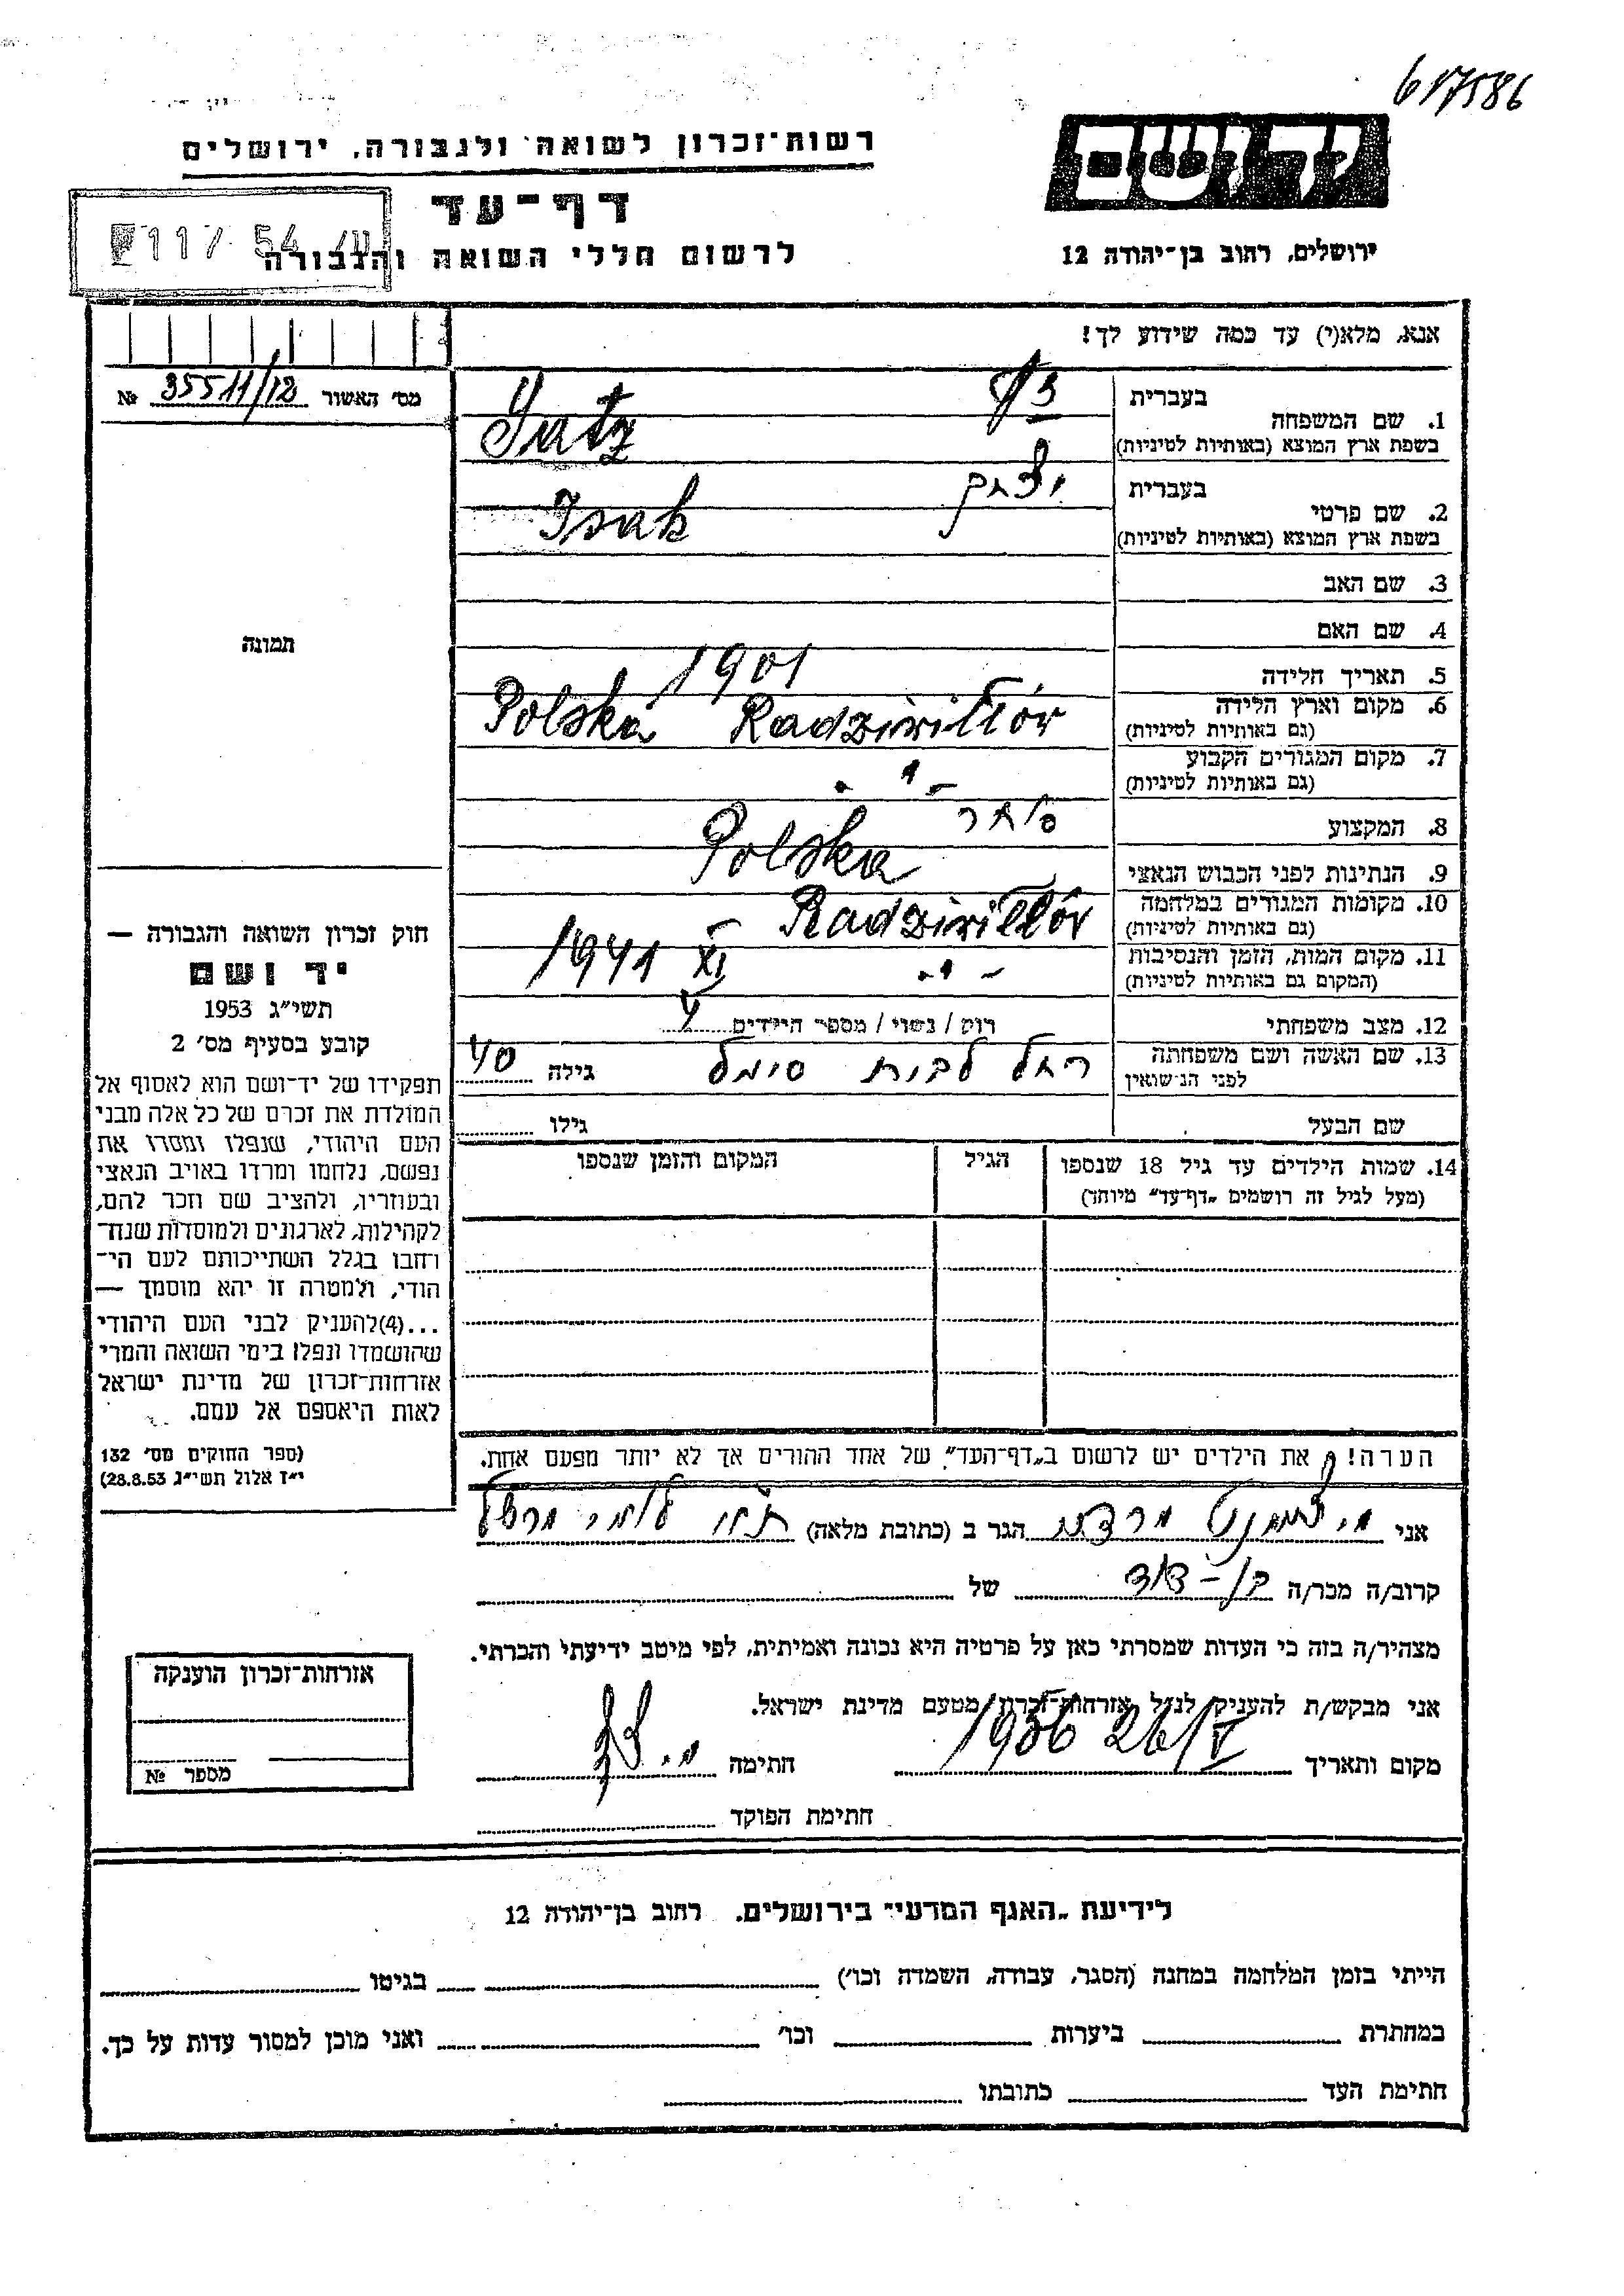 617586
רשות־זכרון לשואה ולגבורה, ירושלים
יד ושם
דף־עד
117 54
לרשום חללי השואה והגבורה
ירושלים, רחוב בן־יהודה 12
אנא, מלא(י) עד כמה שידוע לך!
מס' האשור 35511/12 №
1. שם המשפחה
בעברית
בשפת ארץ המוצא (באותיות לטיניות)
2. שם פרטי
בעברית יצחק
בשפת ארץ המוצא (באותיות לטיניות) Isak
3. שם האב
4. שם האם
5. תאריך הלידה 1901
6. מקום וארץ הלידה Polska Radziwillów
(גם באותיות לטיניות)
7. מקום המגורים הקבוע - " -
(גם באותיות לטיניות)
8. המקצוע סוחר
9. הנתינות לפני הכבוש הנאצי Polska
10. מקומות המגורים במלחמה Radziwillów
(גם באותיות לטיניות)
11. מקום המות, הזמן והנסיבות - " - 1941 XI
(המקום גם באותיות לטיניות)
12. מצב משפחתי רוק / נשוי / מספר הילדים
13. שם האשה ושם משפחתה רחל לבית גילה 40
לפני הנשואין
שם הבעל גילו
14. שמות הילדים עד גיל 18 שנספו הגיל המקום והזמן שנספו
(מעל לגיל זה רושמים „דף־עד" מיוחד)
הערה! את הילדים יש לרשום ב„דף־העד" של אחד ההורים אך לא יותר מפעם אחת.
תמונה
חוק זכרון השואה והגבורה —
יד ושם
תשי"ג 1953
קובע בסעיף מס' 2
תפקידו של יד־ושם הוא לאסוף אל
המולדת את זכרם של כל אלה מבני
העם היהודי, שנפלו ומסרו את
נפשם, נלחמו ומרדו באויב הנאצי
ובעוזריו, ולהציב שם וזכר להם,
לקהילות, לארגונים ולמוסדות שנח־
רחבו בגלל השתייכותם לעם הי־
הודי, ולמטרה זו יהא מוסמך —
...(4) להעניק לבני העם היהודי
שהושמדו ונפלו בימי השואה והמרי
אזרחות־זכרון של מדינת ישראל
לאות היאספם אל עמם.
(ספר החוקים מס' 132
י"ז אלול תשי"ג 28.8.53)
אני הגר ב (כתובת מלאה)
קרוב/ה מכר/ה בן-דוד של
מצהיר/ה בזה כי העדות שמסרתי כאן על פרטיה היא נכונה ואמיתית, לפי מיטב ידיעתי והכרתי.
אני מבקש/ת להעניק לנ"ל אזרחות־זכרון מטעם מדינת ישראל.
מקום ותאריך 1956 26/V חתימה
חתימת הפוקד
אזרחות־זכרון הוענקה
מספר №
לידיעת „האגף המדעי" בירושלים, רחוב בן־יהודה 12
הייתי בזמן המלחמה במחנה (הסגר, עבודה, השמדה וכו') בגיטו
במחתרת ביערות וכו' ואני מוכן למסור עדות על כך.
חתימת העד כתובתו